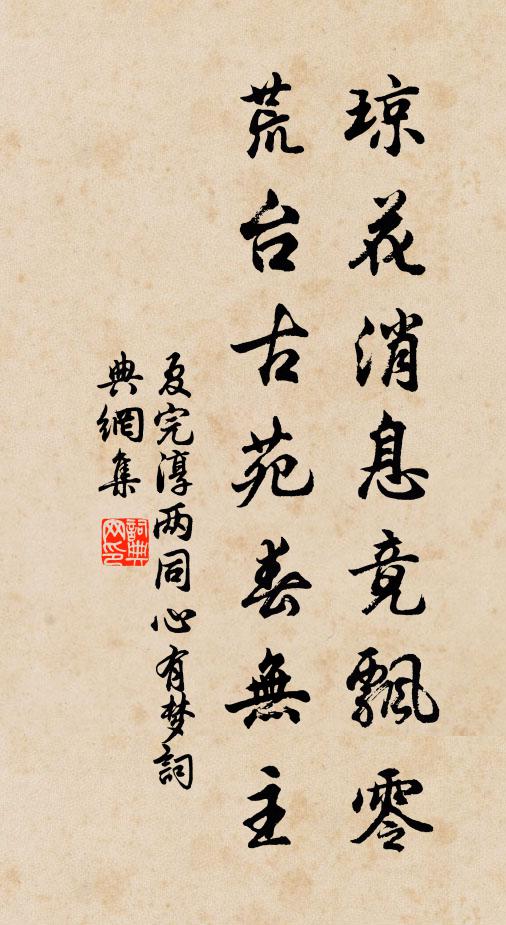 琼花消息竟飘零
荒台古苑春無主
夏完淳两同心有梦詞
典網集
詞典
网印